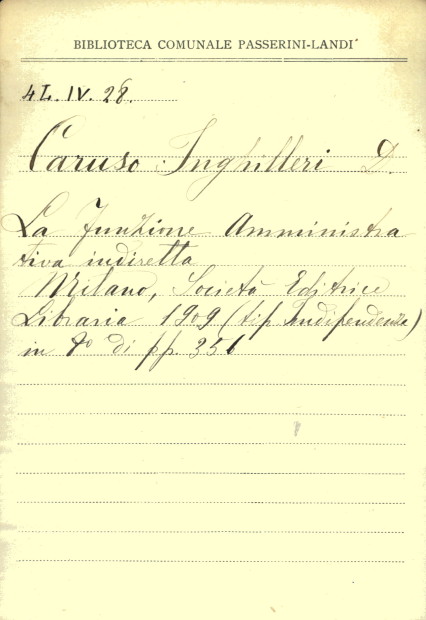 BIBLIOTECA COMUNALE PASSERINI-LANDI
4L. IV. 28.
Caruso-Inghilleri D.
La funzione Amministra
tiva indiretta
Milano, Società Editrice
Libraria 1909 (tip Indipendenza)
in 8º di pp. 356